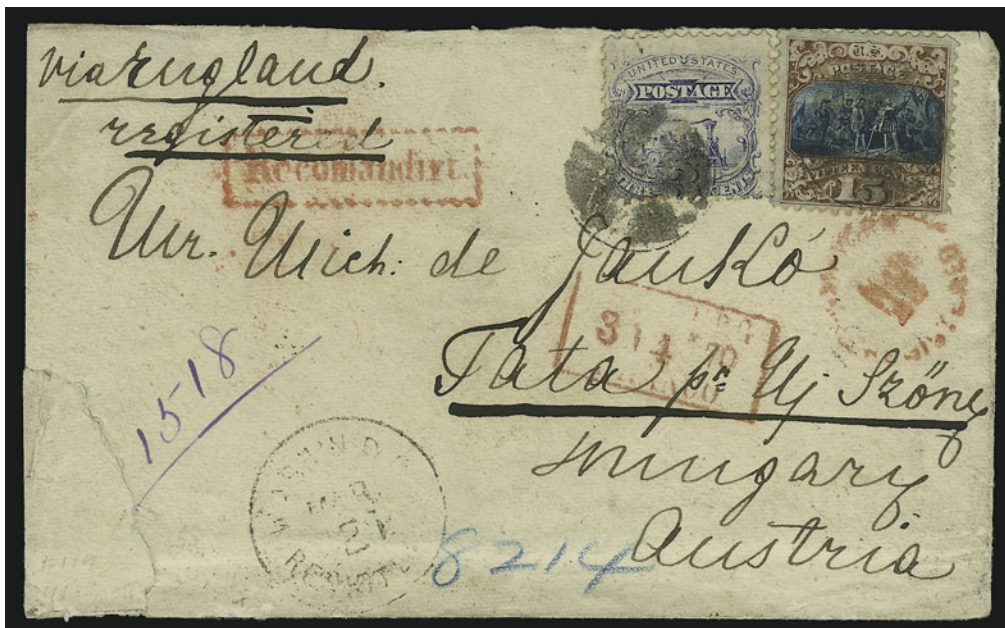 via England.
registered
Recomandirt.
UNITED STATES
POSTAGE
CENTS
U.S.
POSTAGE
FIFTEEN CENTS
15
Mr. Mich: de Jankó
3 1 4 70
Tata pr Uj Szőny
Hungary
Austria
15-18
8214